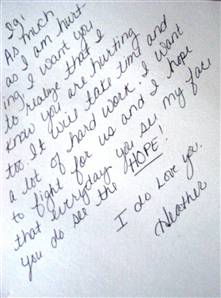 As much
as I am hurt-
ing I want you
to realize that I
know you are hurting
too. It will take time and
a lot of hard work. I want
to fight for us and I hope
that everyday you see my face
you do see the HOPE!
I do love you.
Heather